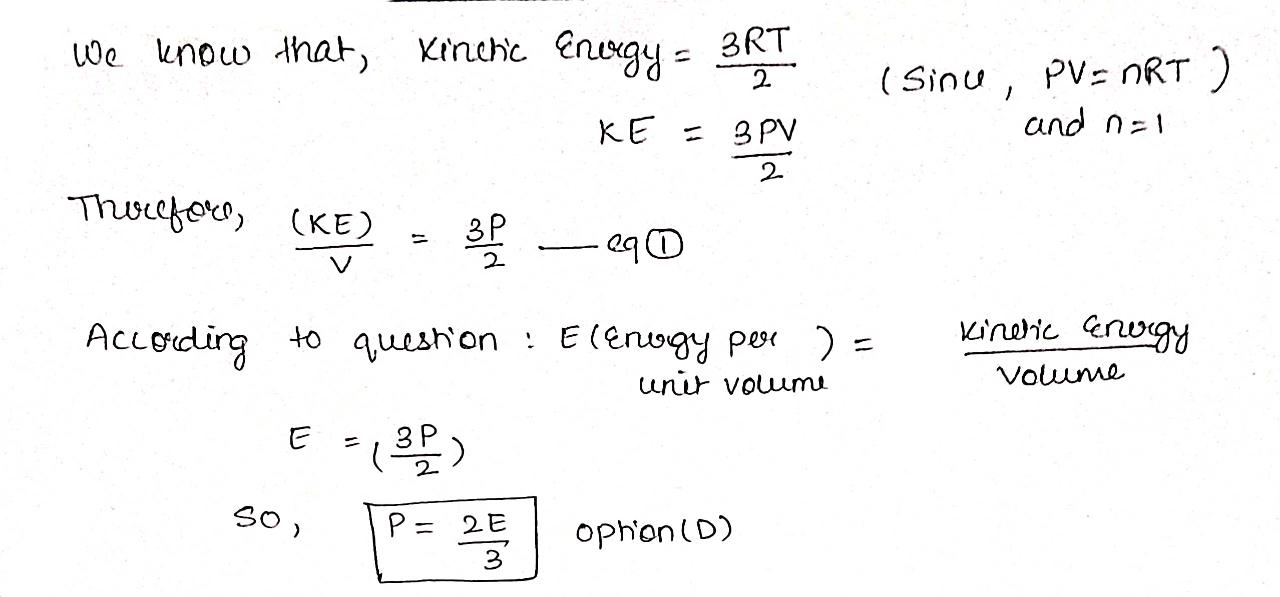 We know that, Kinetic Energy = 3RT/2 (Since, PV = nRT)
KE = 3PV/2 and n=1
Therefore, (KE)/V = 3P/2 — eq ①
According to question : E (Energy per unit volume) = Kinetic Energy/Volume
E = (3P/2)
So, P = 2E/3 option (D)